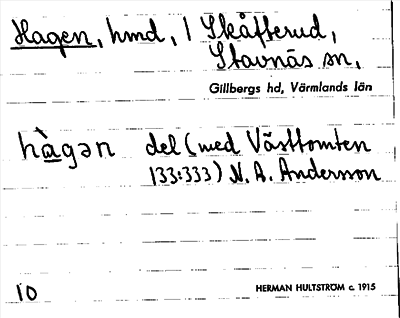 Hagen, hmd, 1 Skåfterud,
Stavnäs sn,
Gillbergs hd, Värmlands län
hàgən del (med Västtomten
133:333) N. A. Andersson
10 HERMAN HULTSTRÖM c. 1915